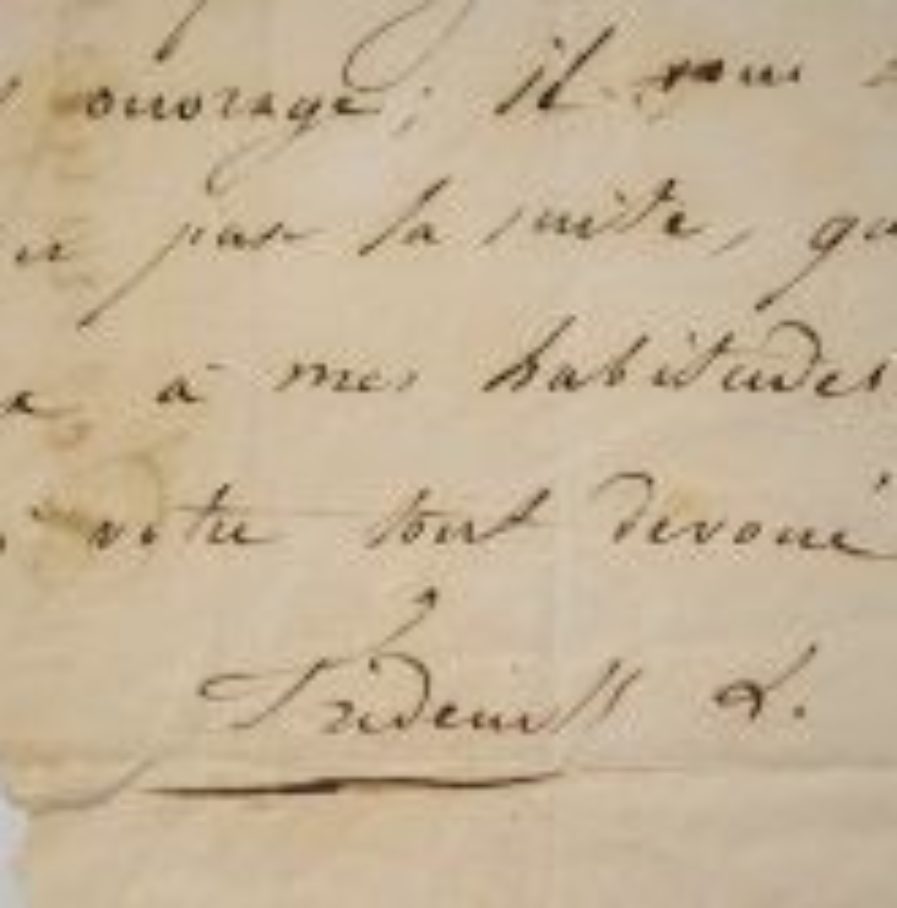 ouvrage; il vous
pas la suite, qu
à mes habitudes
votre tout devoué